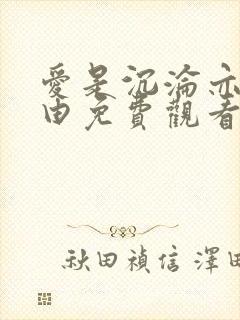 愛是沉淪亦
由免費觀看
秋田禎信 澤田